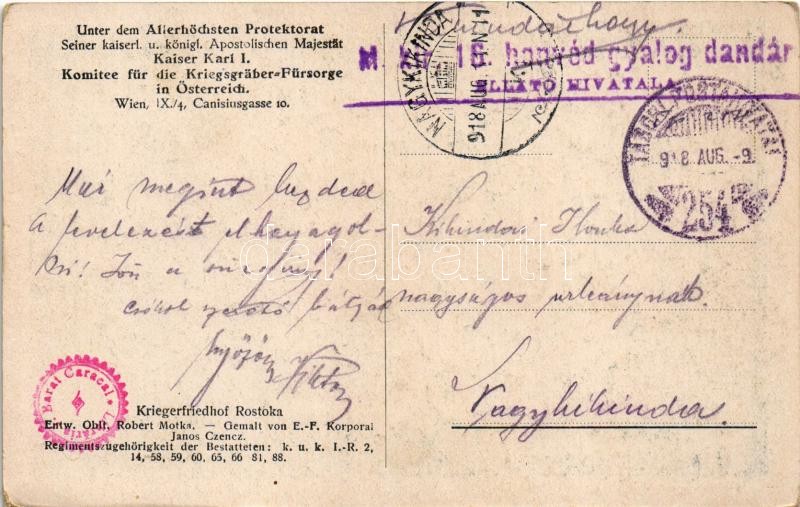 Unter dem Allerhöchsten Protektorat
Seiner kaiserl. u. königl. Apostolischen Majestät
Kaiser Karl I.
Komitee für die Kriegsgräber-Fürsorge
in Österreich.
Wien, IX./4, Canisiusgasse 10.
M. kir. 16. honvéd gyalog dandár
ELLÁTÓ HIVATALA
NAGYKIKINDA
918 AUG 11 N 11
TÁBORI POSTAHIVATAL
918 AUG. -9.
254
Már megint kezded
a levelezést elhanyagol-
ni! Jön a
csókol szerető bátyád
Győző
Viktor
Kikindai Ilonka
nagyságos urleánynak.
Nagykikinda.
darabanth
Barat Caracal · Libraria
Kriegerfriedhof Rostoka
Entw. Oblt. Robert Motka. — Gemalt von E.-F. Korporal
Janos Czencz.
Regimentszugehörigkeit der Bestatteten: k. u. k. I.-R. 2,
14, 58, 59, 60, 65, 66 81, 88.